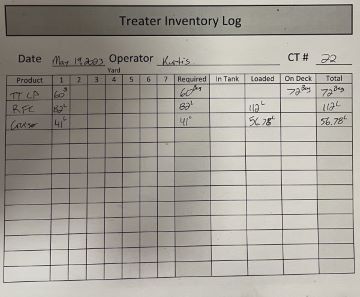 Treater Inventory Log
Date May 19, 2023 Operator Kurtis CT # 22
Yard
Product 1 2 3 4 5 6 7 Required In Tank Loaded On Deck Total
TTCP 60 60 Bag 72 Bag 72 Bag
RFC 82L 82L 112L 112L
41L 41L 56.78L 56.78L